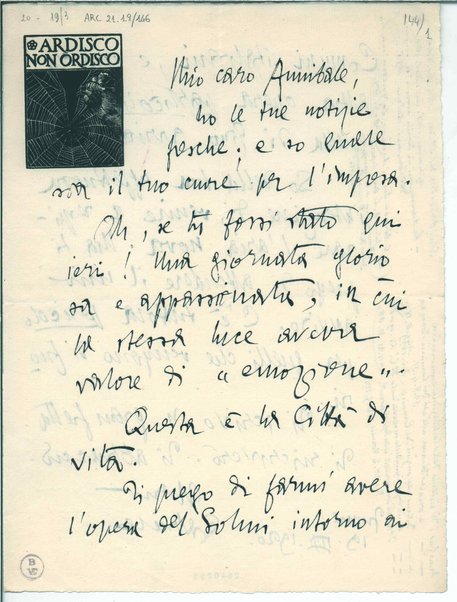 20 - 19/3 ARC 21.19/166
(44) 1
ARDISCO
NON ORDISCO
Mio caro Annibale,
ho le tue notizie
fresche; e so quale
sia il tuo cuore per l'impresa.
Oh, se tu fossi stato qui
ieri! Una giornata glorio
sa e appassionata, in cui
la stessa luce aveva
valore di "emozione".
Questa è la Città di
vita.
Ti prego di farmi avere
l'opera del Solmi intorno ai
B
VE